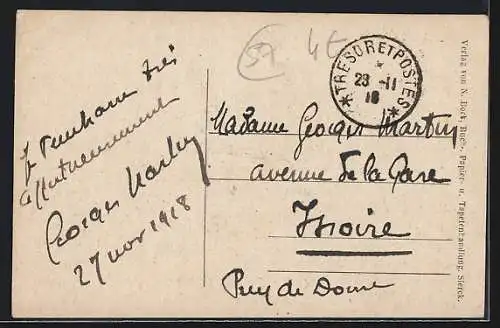 59
4E
TRESOR ET POSTES
23 - 11
18
Je t'embrasse très
affectueusement
Georges Martin
27 nov 1918
Madame Georges Martin
avenue de la Gare
Issoire
Puy de Dome
Verlag von N. Bock, Buch-, Papier- u. Tapetenhandlung, Sierck.